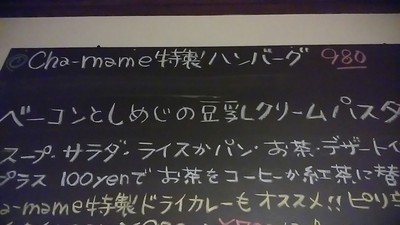 ◎Cha-mame特製ハンバーグ 980
ベーコンとしめじの豆乳クリームパスタ
スープ・サラダ・ライスかパン・お茶・デザート
プラス100yenでお茶をコーヒーか紅茶に替
a-mame特製ドライカレーもオススメ!!ピリ